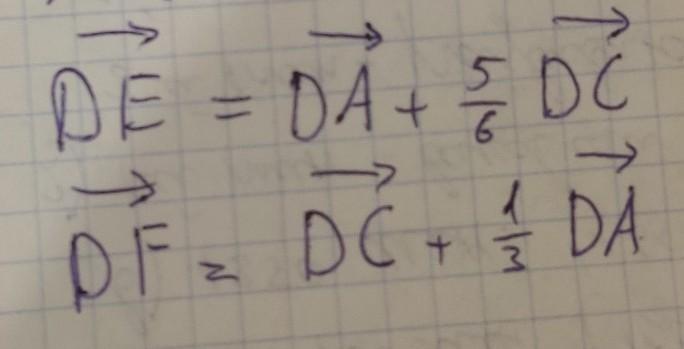 $\overrightarrow{DE} = \overrightarrow{DA} + \frac{5}{6} \overrightarrow{DC}$
$\overrightarrow{DF} = \overrightarrow{DC} + \frac{1}{3} \overrightarrow{DA}$